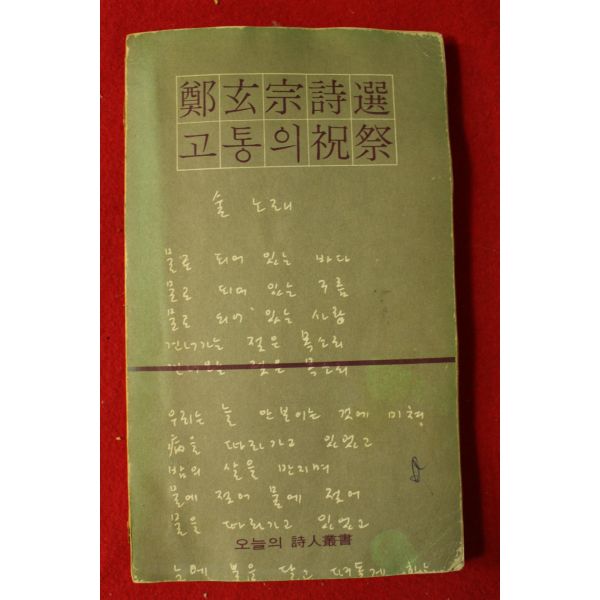 鄭玄宗詩選
고통의祝祭
술 노래
물로 되어 있는 바다
물로 되어 있는 구름
물로 되어 있는 사랑
건너가는 젖은 목소리
건너오는 젖은 목소리
우리는 늘 안보이는 것에 미쳐
病을 따라가고 있었고
밤의 살을 만지며
물에 젖어 물에 젖어
물을 따라가고 있었고
오늘의 詩人叢書
눈에 불을 달고 떠돌게 하는